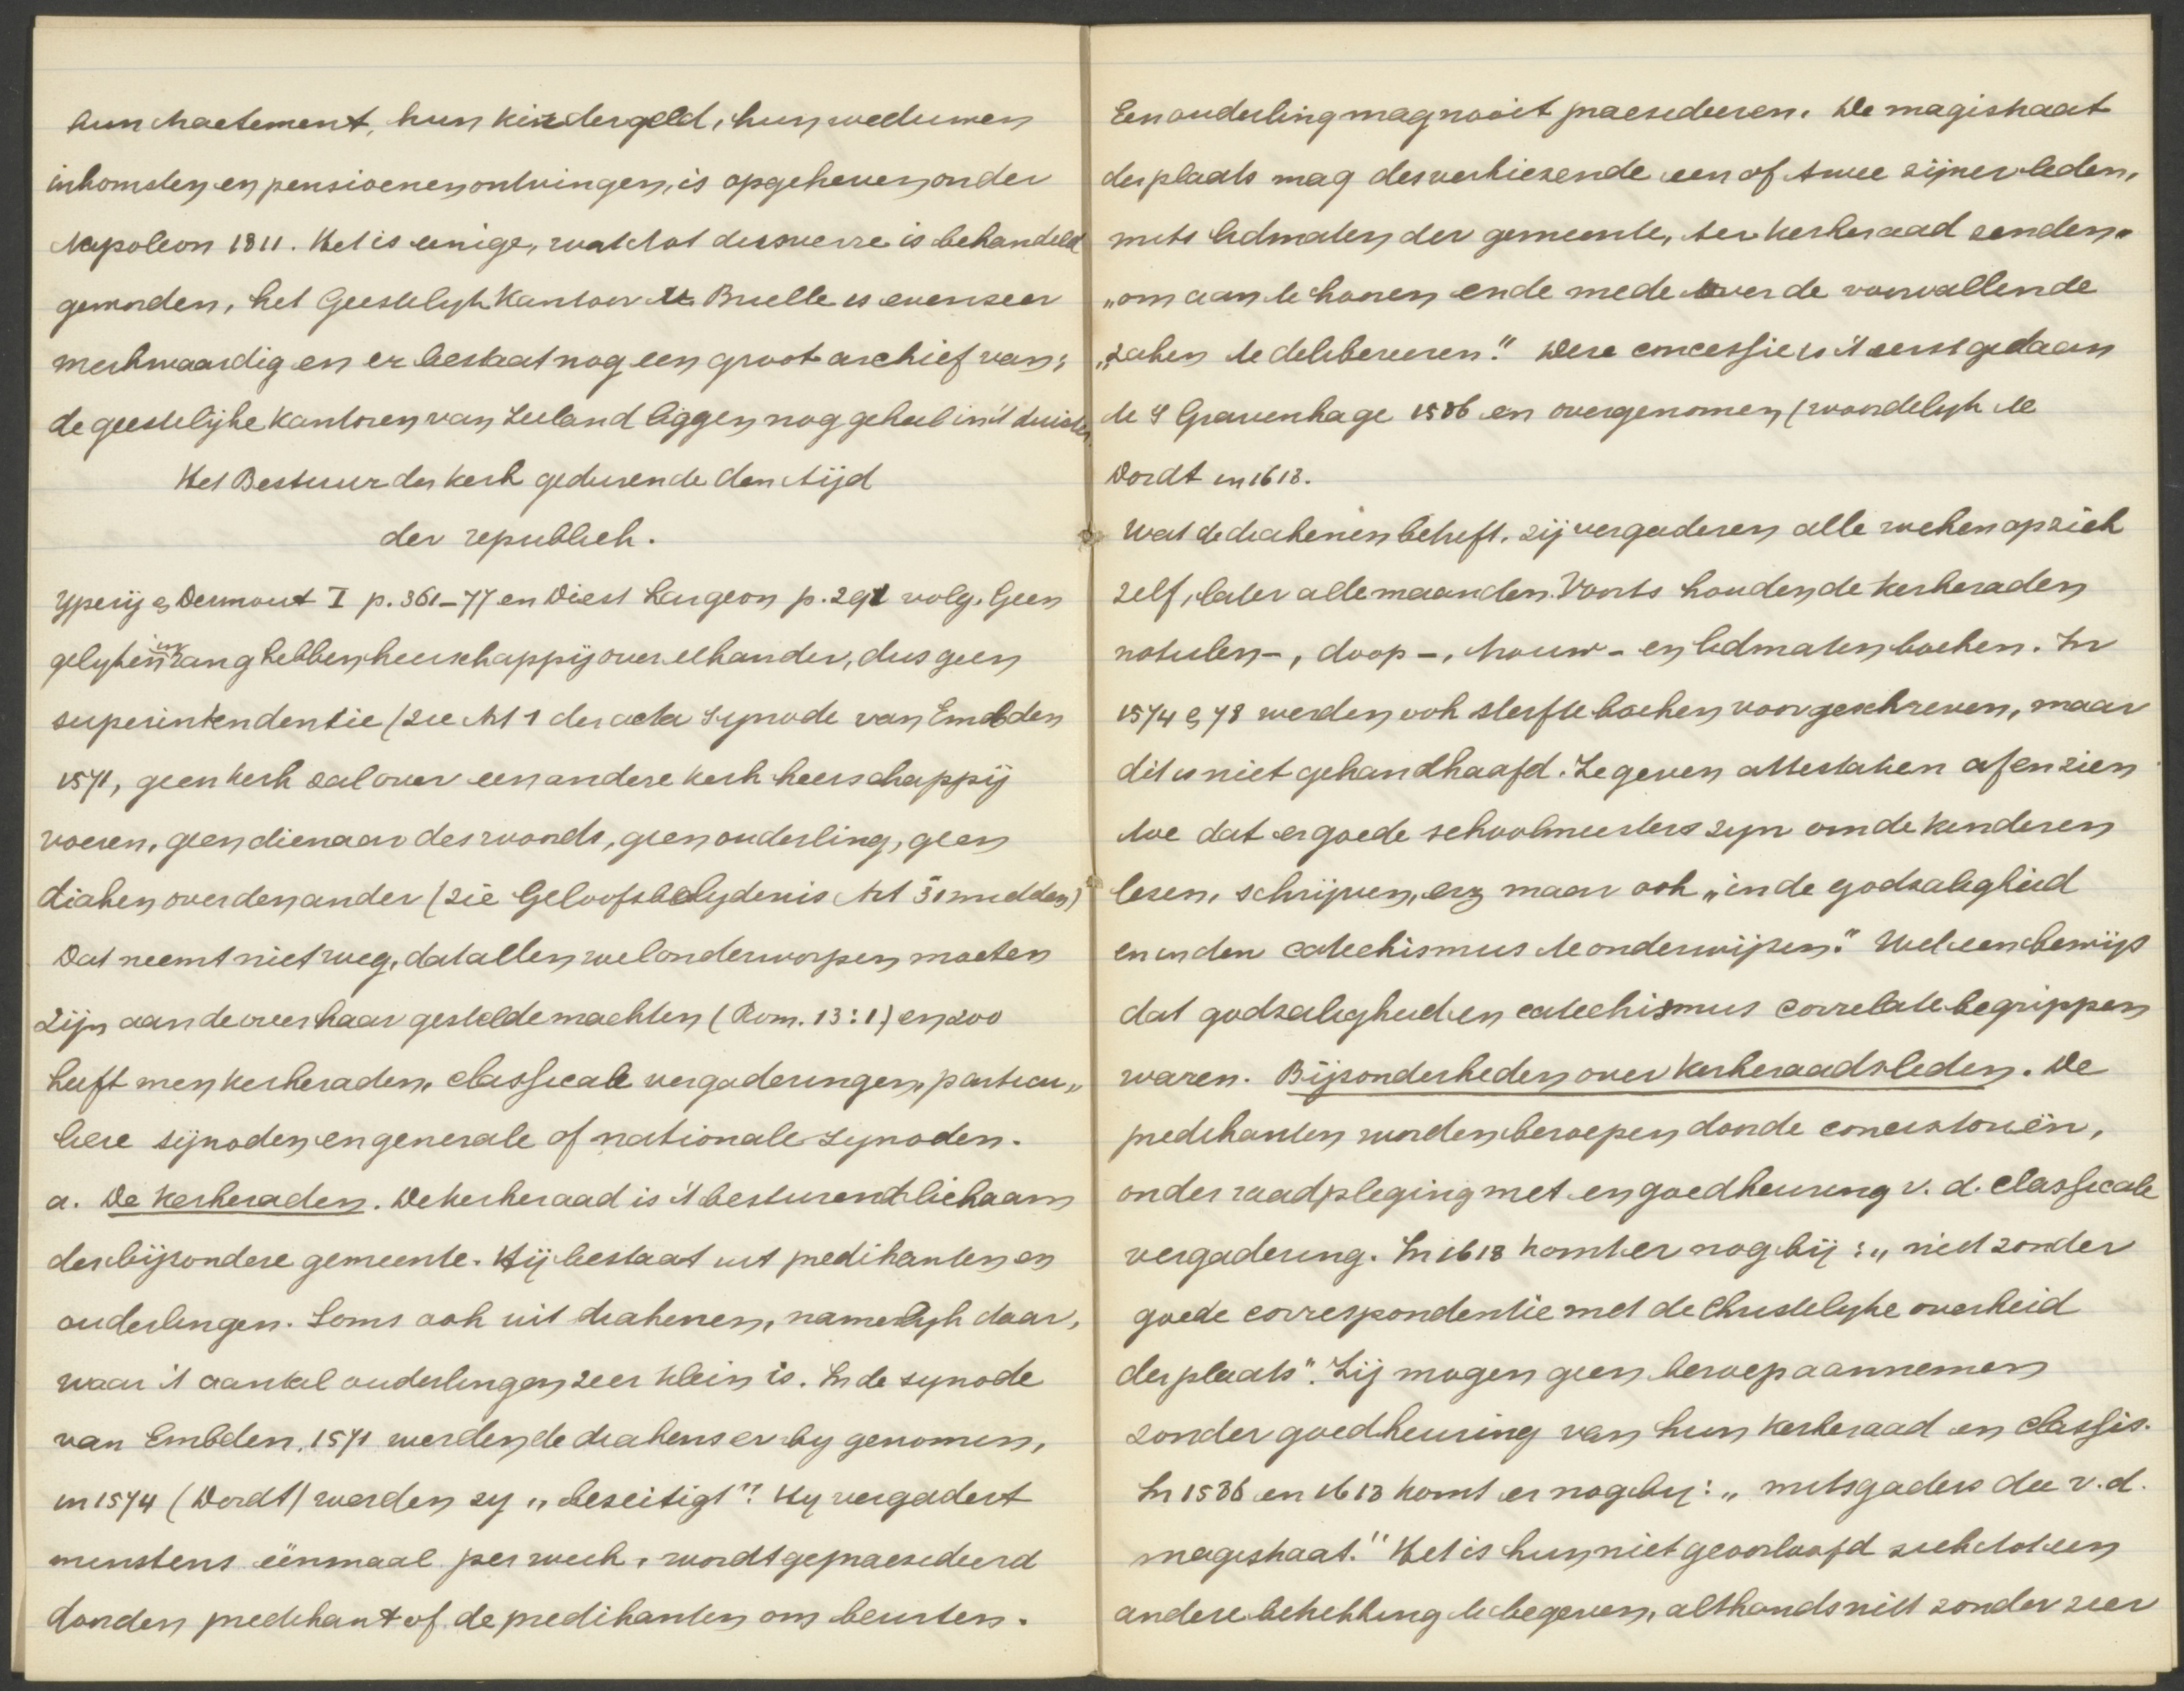 hun tractement, hun kindergeld, hun weduwen
inkomsten en pensioenen ontvingen, is opgeheven onder
Napoleon 1811. Het is eenige, wat tot dusverre is behandeld
geworden, het Geestelyk Kantoor te Brielle is evenzeer
merkwaardig en er bestaat nog een groot archief van;
de geestelijke kantoren van Zeeland liggen nog geheel in 't duister.
Het Bestuur der kerk gedurende den tijd
der republiek.
Ypeij & Dermout I p. 361-77 en Diest Lorgion p. 291 volg. Geen
gelyken in rang hebben heerschappij over elkander, dus geen
superintendentie (zie Art 1 der acta Synode van Embden
1571, geen kerk zal over een andere kerk heerschappij
voeren, geen dienaar des woords, geen ouderling, geen
diaken over den ander (zie Geloofsbelydenis Art 31 midden)
Dat neemt niet weg, dat allen wel onderworpen moeten
zijn aan de over haar gestelde machten (Rom. 13:1) en zoo
heeft men kerkeraden, classicale vergaderingen, particu„
liere synoden en generale of nationale synoden.
a. De Kerkeraden. De kerkeraad is 't besturend lichaam
der bijzondere gemeente. Hij bestaat uit predikanten en
ouderlingen. Soms ook uit diakenen, namelyk daar,
waar 't aantal ouderlingen zeer klein is. In de synode
van Embden, 1571 werden de diakens er by genomen,
in 1574 (Dordt) werden zy „beseitigt". Hy vergadert
minstens éénmaal per week, wordt gepraesideerd
door den predikant of de predikanten om beurten.
Een ouderling mag nooit praesideeren. De magistraat
der plaats mag desverkiezende een of twee zijner leden,
mits lidmaten der gemeente, ter kerkeraad zenden.
„om aan te hooren ende mede over de voorvallende
„zaken te delibereeren." Deze concessie is 't eerst gedaan
te 's Gravenhage 1586 en overgenomen (woordelyk te
Dordt in 1618.
Wat de diakenen betreft, zij vergaderen alle weken op zich
zelf, later alle maanden. Voorts houden de kerkeraden
notulen-, doop-, trouw- en lidmatenboeken. In
1574 & 78 werden ook sterfteboeken voorgeschreven, maar
dit is niet gehandhaafd. Ze geven attestatien af en zien
toe dat er goede schoolmeesters zyn om de kinderen
lezen, schrijven, enz maar ook „in de godzaligheid
en in den catechismus te onderwijzen." Wel een bewijs
dat godzaligheid en catechismus correlate begrippen
waren. Bijzonderheden over kerkeraadsleden. De
predikanten worden beroepen door de consistoriën,
onder raadpleging met en goedkeuring v. d. classicale
vergadering. In 1618 komt er nog bij: „niet zonder
goede correspondentie met de Christelyke overheid
der plaats". Zij mogen geen beroep aannemen
zonder goedkeuring van hun kerkeraad en classis.
In 1586 en 1618 komt er nog by: „mitsgaders die v. d.
magistraat." Het is hun niet geoorloofd zich tot een
andere betrekking te begeven, althands niet zonder zeer